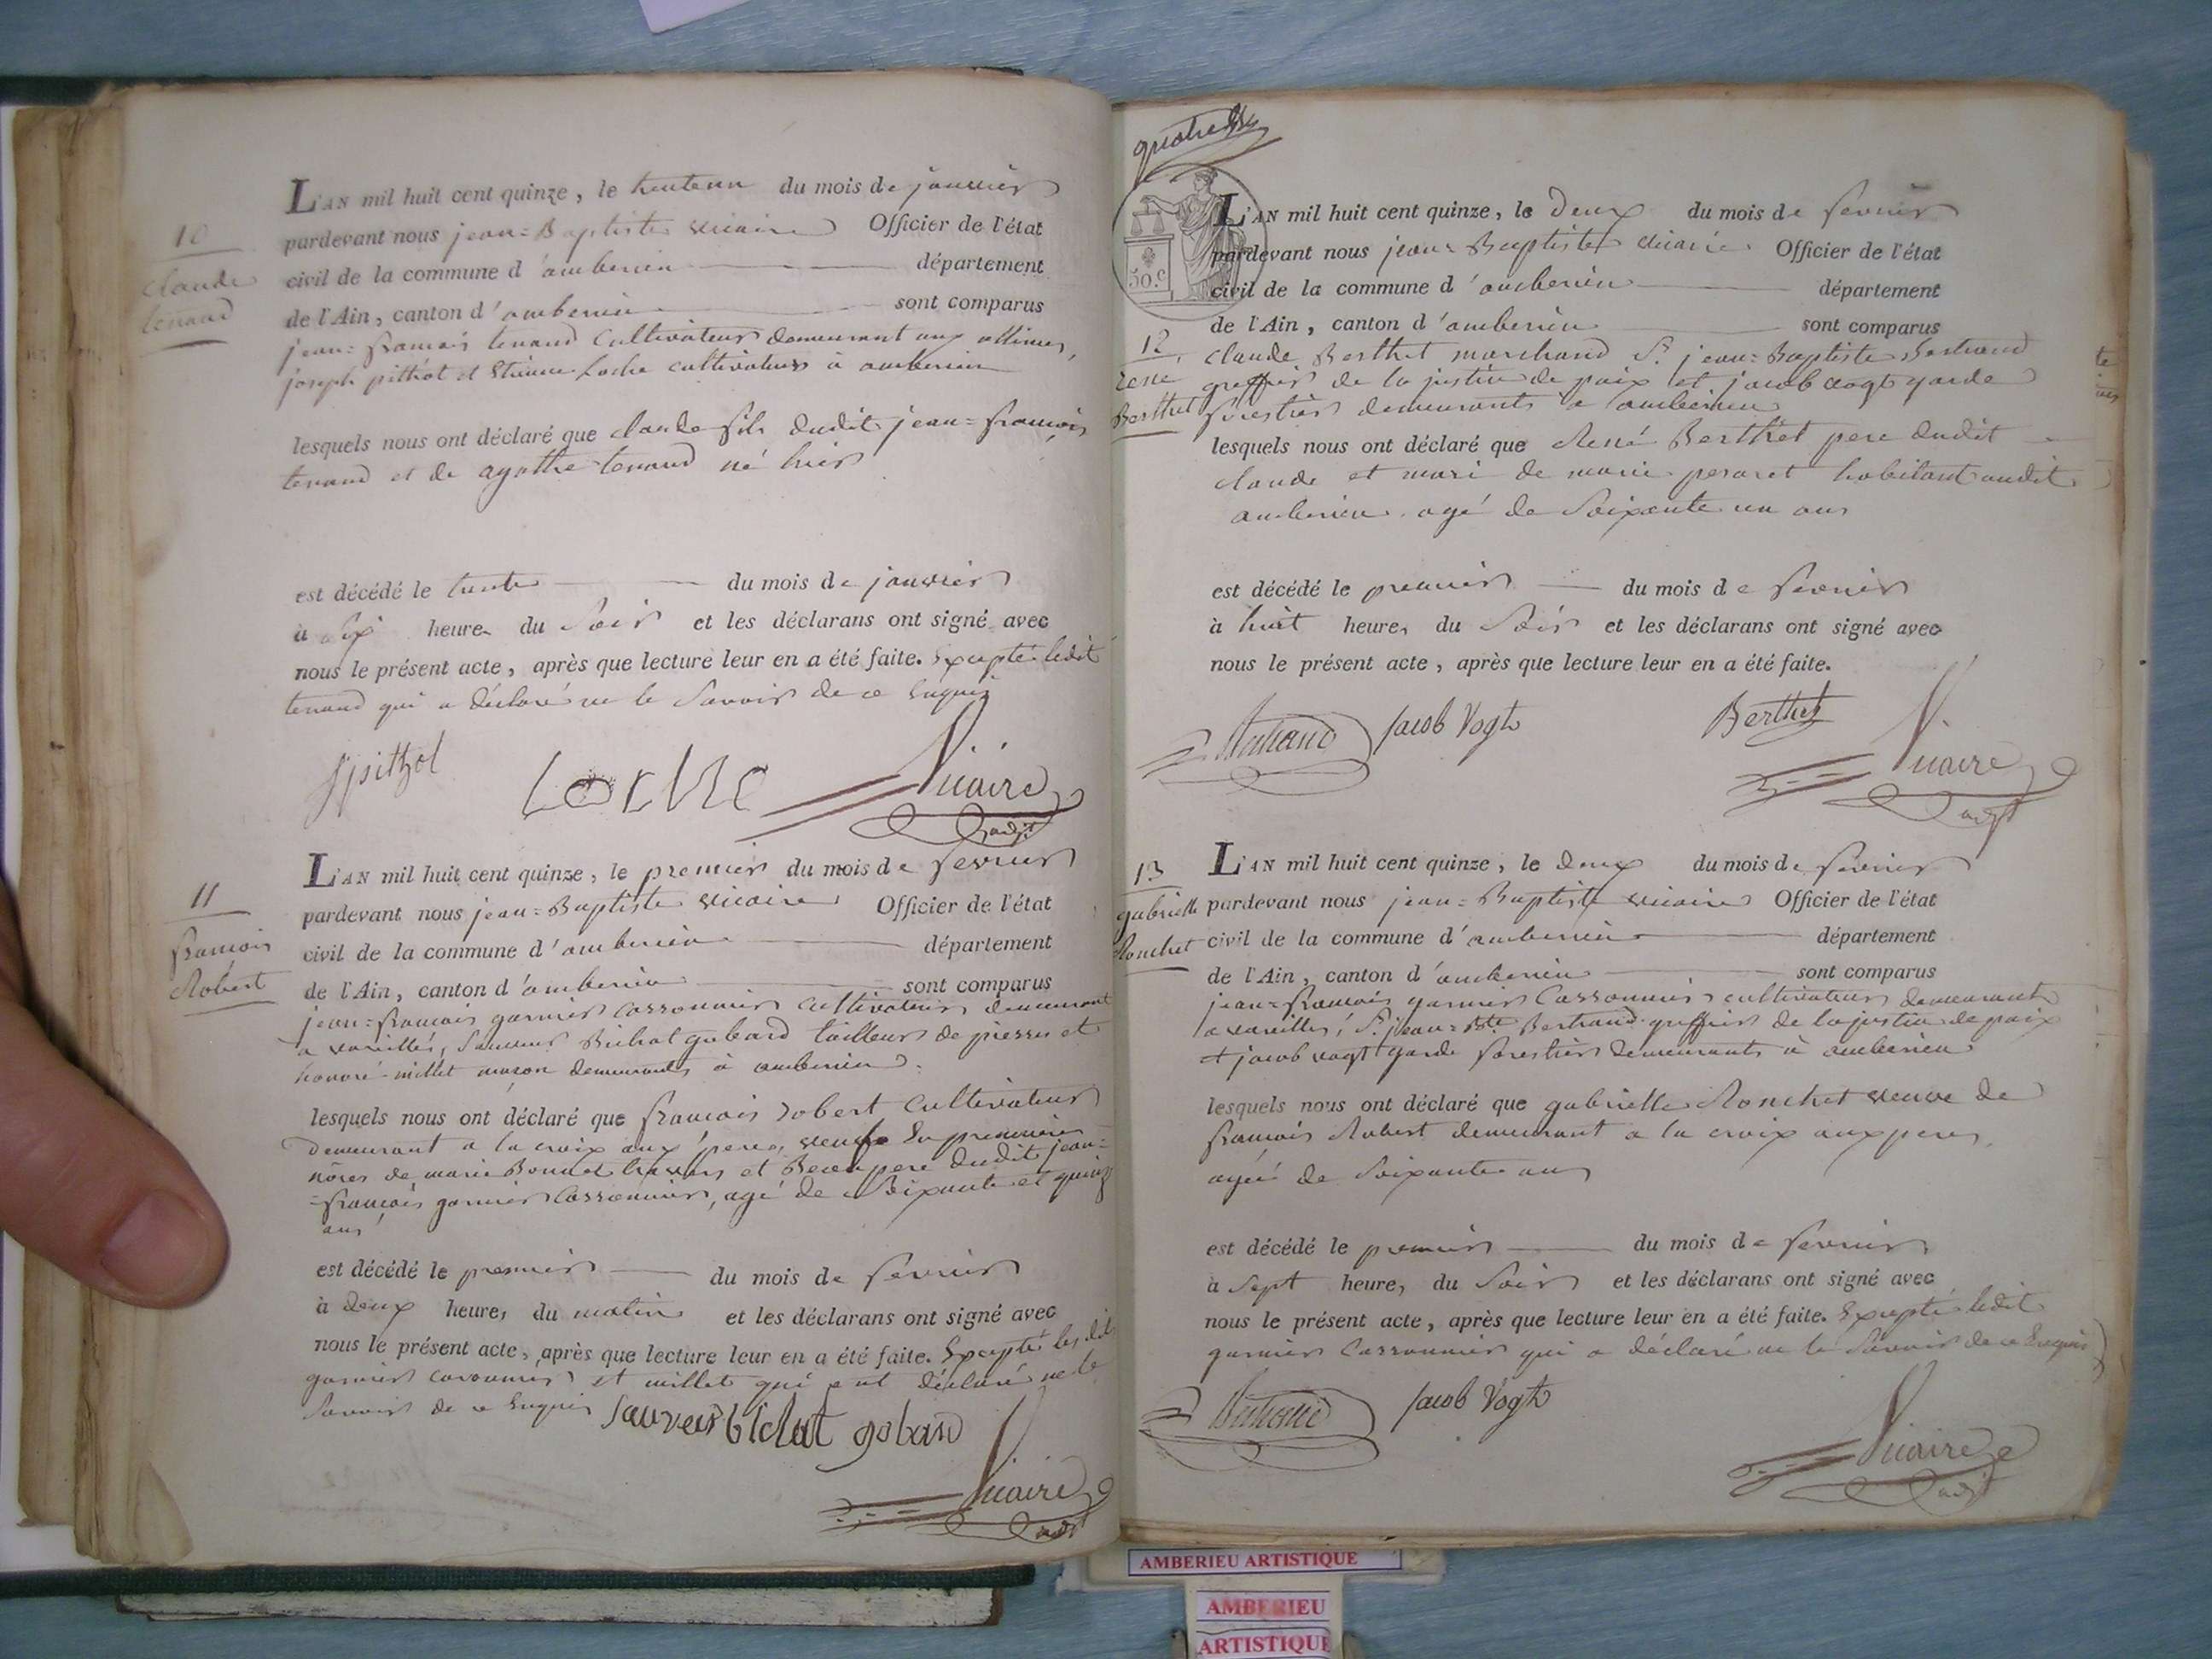 10
claude
tenand
L'AN mil huit cent quinze, le trente un du mois de janvier
pardevant nous jean=Baptiste vicaire Officier de l'état
civil de la commune d'amberieu département
de l'Ain, canton d'amberieu sont comparus
jean=francois tenand Cultivateur demeurant aux allimes,
joseph pithiot et Etienne Loche cultivateurs à amberieu
lesquels nous ont déclaré que claude fils dudit jean=francois
tenand et de agathe tenand né hier
est décédé le trente du mois de janvier
à dix heures du Soir et les déclarans ont signé avec
nous le présent acte, après que lecture leur en a été faite. Excepté ledit
tenand qui a déclaré ne le Savoir de ce Enquis
Loche
Vicaire
adjt
11
francois
Robert
L'AN mil huit cent quinze, le premier du mois de fevrier
pardevant nous jean=Baptiste vicaire Officier de l'état
civil de la commune d'amberieu département
de l'Ain, canton d'amberieu sont comparus
jean=francois garnier Cassonnier Cultivateur demeurant
a vareilles, Sauveur Bichat gobard tailleur de pierres et
honoré millet maçon demeurants à amberieu
lesquels nous ont déclaré que francois robert Cultivateur
demeurant a la croix aux peres, veuf En premieres
nôces de marie Bonnet et Beaupere dudit jean=
=francois garnier Cassonnier, agé de Soixante et quinze
ans
est décédé le premier du mois de fevrier
à deux heures du matin et les déclarans ont signé avec
nous le présent acte, après que lecture leur en a été faite. Excepté les dits
garnier cassonnier et millet qui ont déclaré ne le
Savoir de ce Enquis Sauveur bichat gobard
Vicaire
adjt
50.c
L'AN mil huit cent quinze, le Deux du mois de fevrier
pardevant nous jean=Baptiste vicaire Officier de l'état
civil de la commune d'amberieu département
de l'Ain, canton d'amberieu sont comparus
12
rené
Berthet
claude Berthet marchand Sr. jean=Baptiste Bertrand
greffier de la justice de paix et jacob vogt garde
forestier demeurants a amberieu
lesquels nous ont déclaré que René Berthet pere dudit
claude et mari de marie peraret habitant audit
amberieu agé de Soixante un ans
est décédé le premier du mois de fevrier
à huit heures du Soir et les déclarans ont signé avec
nous le présent acte, après que lecture leur en a été faite.
Bertrand Jacob Vogt Berthet
Vicaire
adjt
13
gabrielle
Ronchet
L'AN mil huit cent quinze, le deux du mois de fevrier
pardevant nous jean=Baptiste vicaire Officier de l'état
civil de la commune d'amberieu département
de l'Ain, canton d'amberieu sont comparus
jean=francois garnier Cassonnier cultivateur demeurant
a vareilles, Sr. jean=Bte Bertrand greffier de la justice de paix
et jacob vogt garde forestier demeurants à amberieu
lesquels nous ont déclaré que gabrielle Ronchet veuve de
francois Robert demeurant a la croix aux peres,
agée de Soixante ans
est décédé le premier du mois de fevrier
à Sept heures du Soir et les déclarans ont signé avec
nous le présent acte, après que lecture leur en a été faite. Excepté ledit
garnier Cassonnier qui a déclaré ne le Savoir de ce Enquis
Bertrand Jacob Vogt
Vicaire
adjt
AMBERIEU ARTISTIQUE
AMBERIEU
ARTISTIQUE